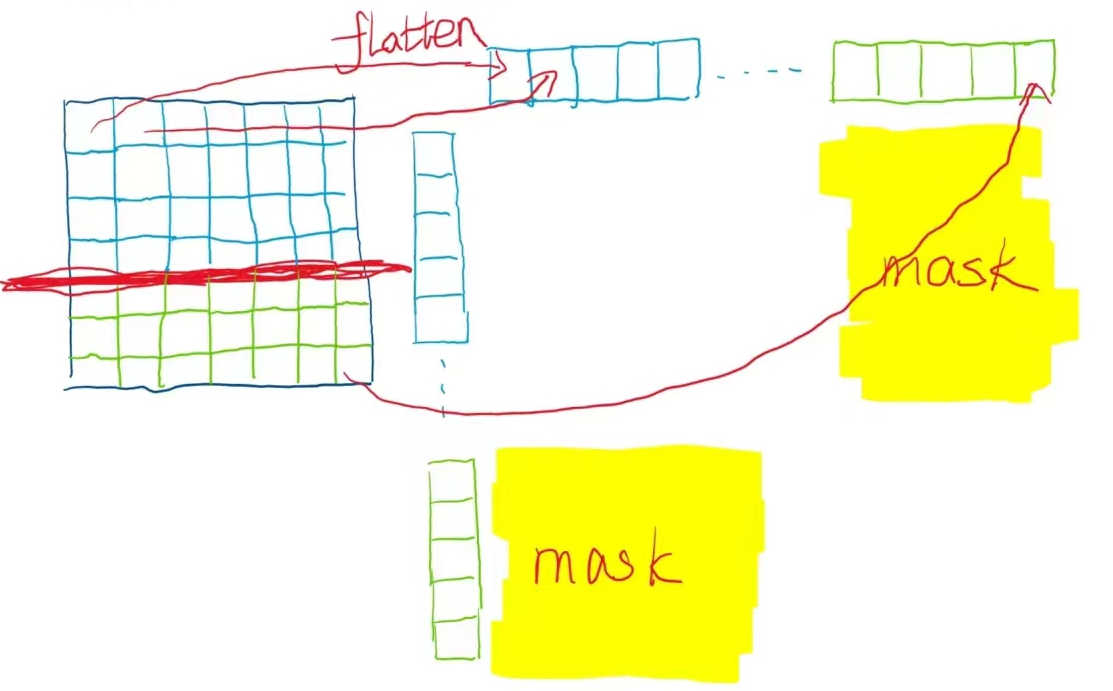 flatten
mask
mask